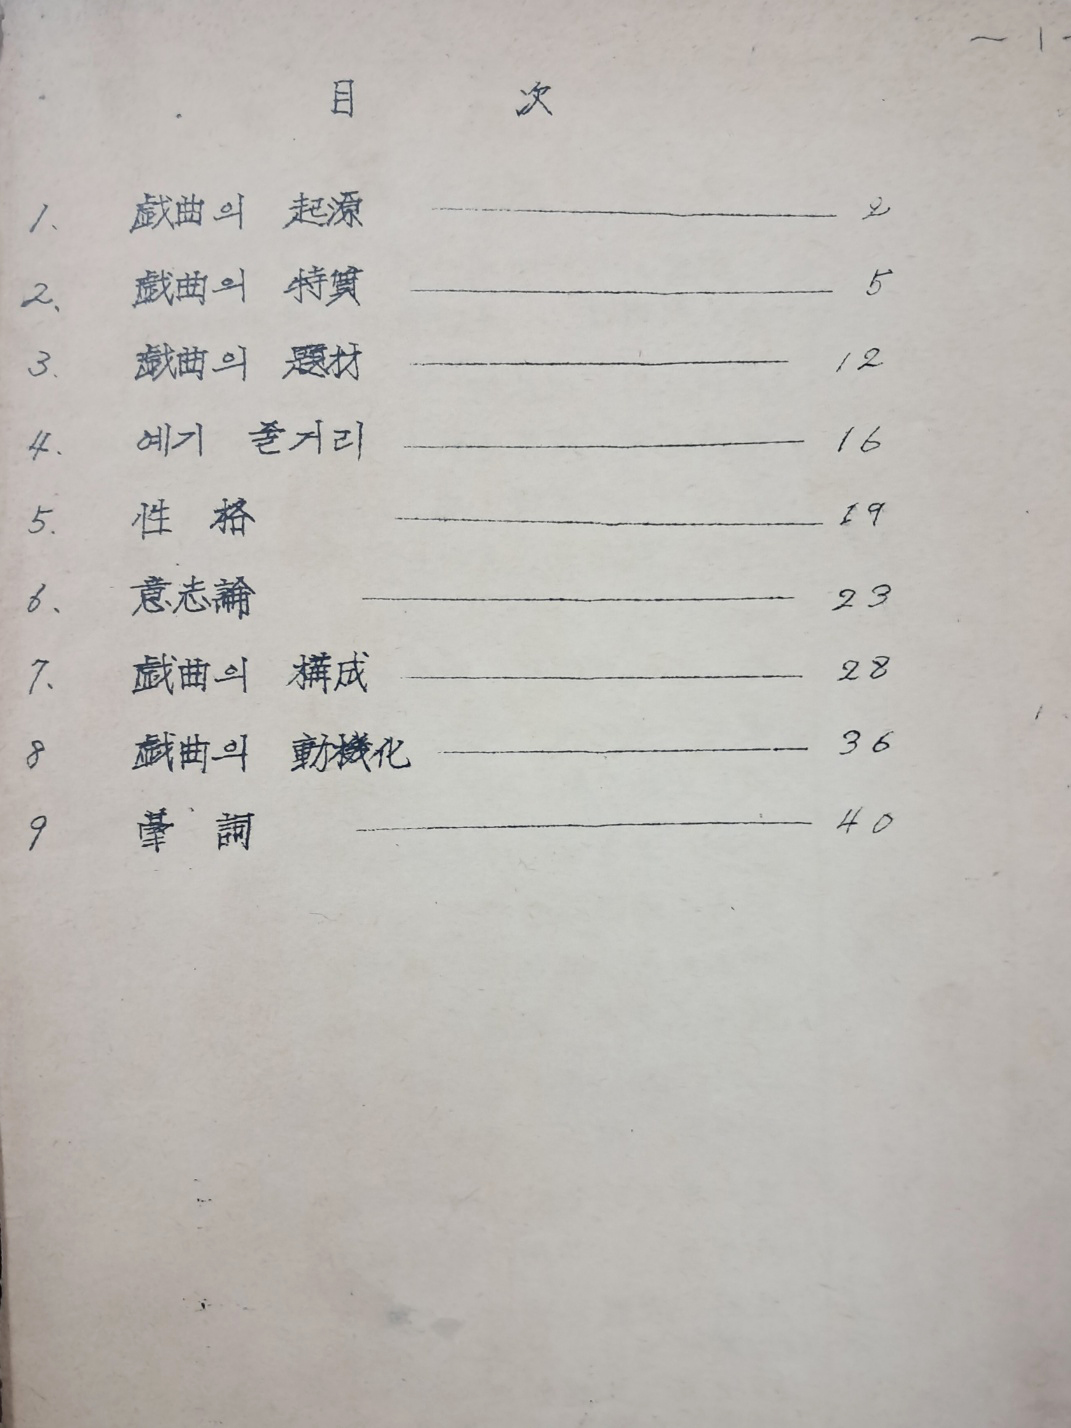 ~ 1 -
目 次
1. 戯曲의 起源 ——— 2
2. 戯曲의 特質 ——— 5
3. 戯曲의 題材 ——— 12
4. 예기 줄거리 ——— 16
5. 性 格 ——— 19
6. 意志論 ——— 23
7. 戯曲의 構成 ——— 28
8 戯曲의 動機化 ——— 36
9 詞 ——— 40